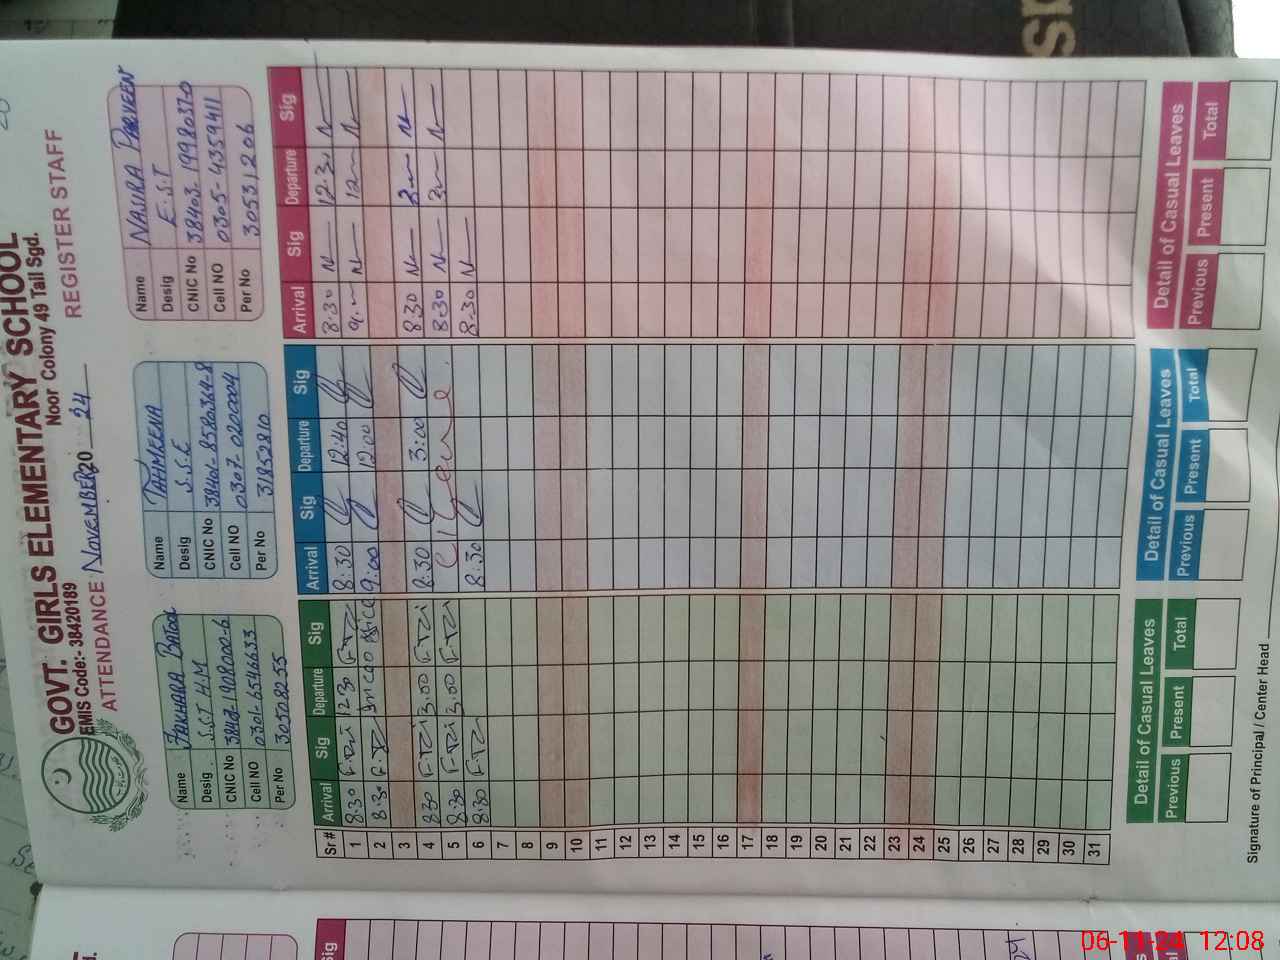 GOVT. GIRLS ELEMENTARY SCHOOL
EMIS Code:- 38420189 Noor Colony 49 Tail Sgd.
ATTENDANCE NOVEMBER 20 24 REGISTER STAFF
Name FAKHARA BATOOL
Desig S.S.T H.M
CNIC No
Cell NO 0301-6546633
Per No 30508255
Name TAHMEENA
Desig S.S.E
CNIC No 38401-8580364-8
Cell NO 0307-0200004
Per No 31852810
Name NASIRA PARVEEN
Desig E.S.T
CNIC No 38403-1998037-0
Cell NO 0305-4359411
Per No 30531206
Sr# Arrival Sig Departure Sig Arrival Sig Departure Sig Arrival Sig Departure Sig
1 8:30 12:30 8:30 12:40 8:30 12:30
2 8:30 office 9:00 12:00 9 12
3
4 8:30 3:00 8:30 3:00 8:30 3
5 8:30 3:00 C/Leave 8:30 3
6 8:30 8:30 8:30
7
8
9
10
11
12
13
14
15
16
17
18
19
20
21
22
23
24
25
26
27
28
29
30
31
Detail of Casual Leaves Detail of Casual Leaves Detail of Casual Leaves
Previous Present Total Previous Present Total Previous Present Total
Signature of Principal / Center Head
Sig
06-11-24 12:08